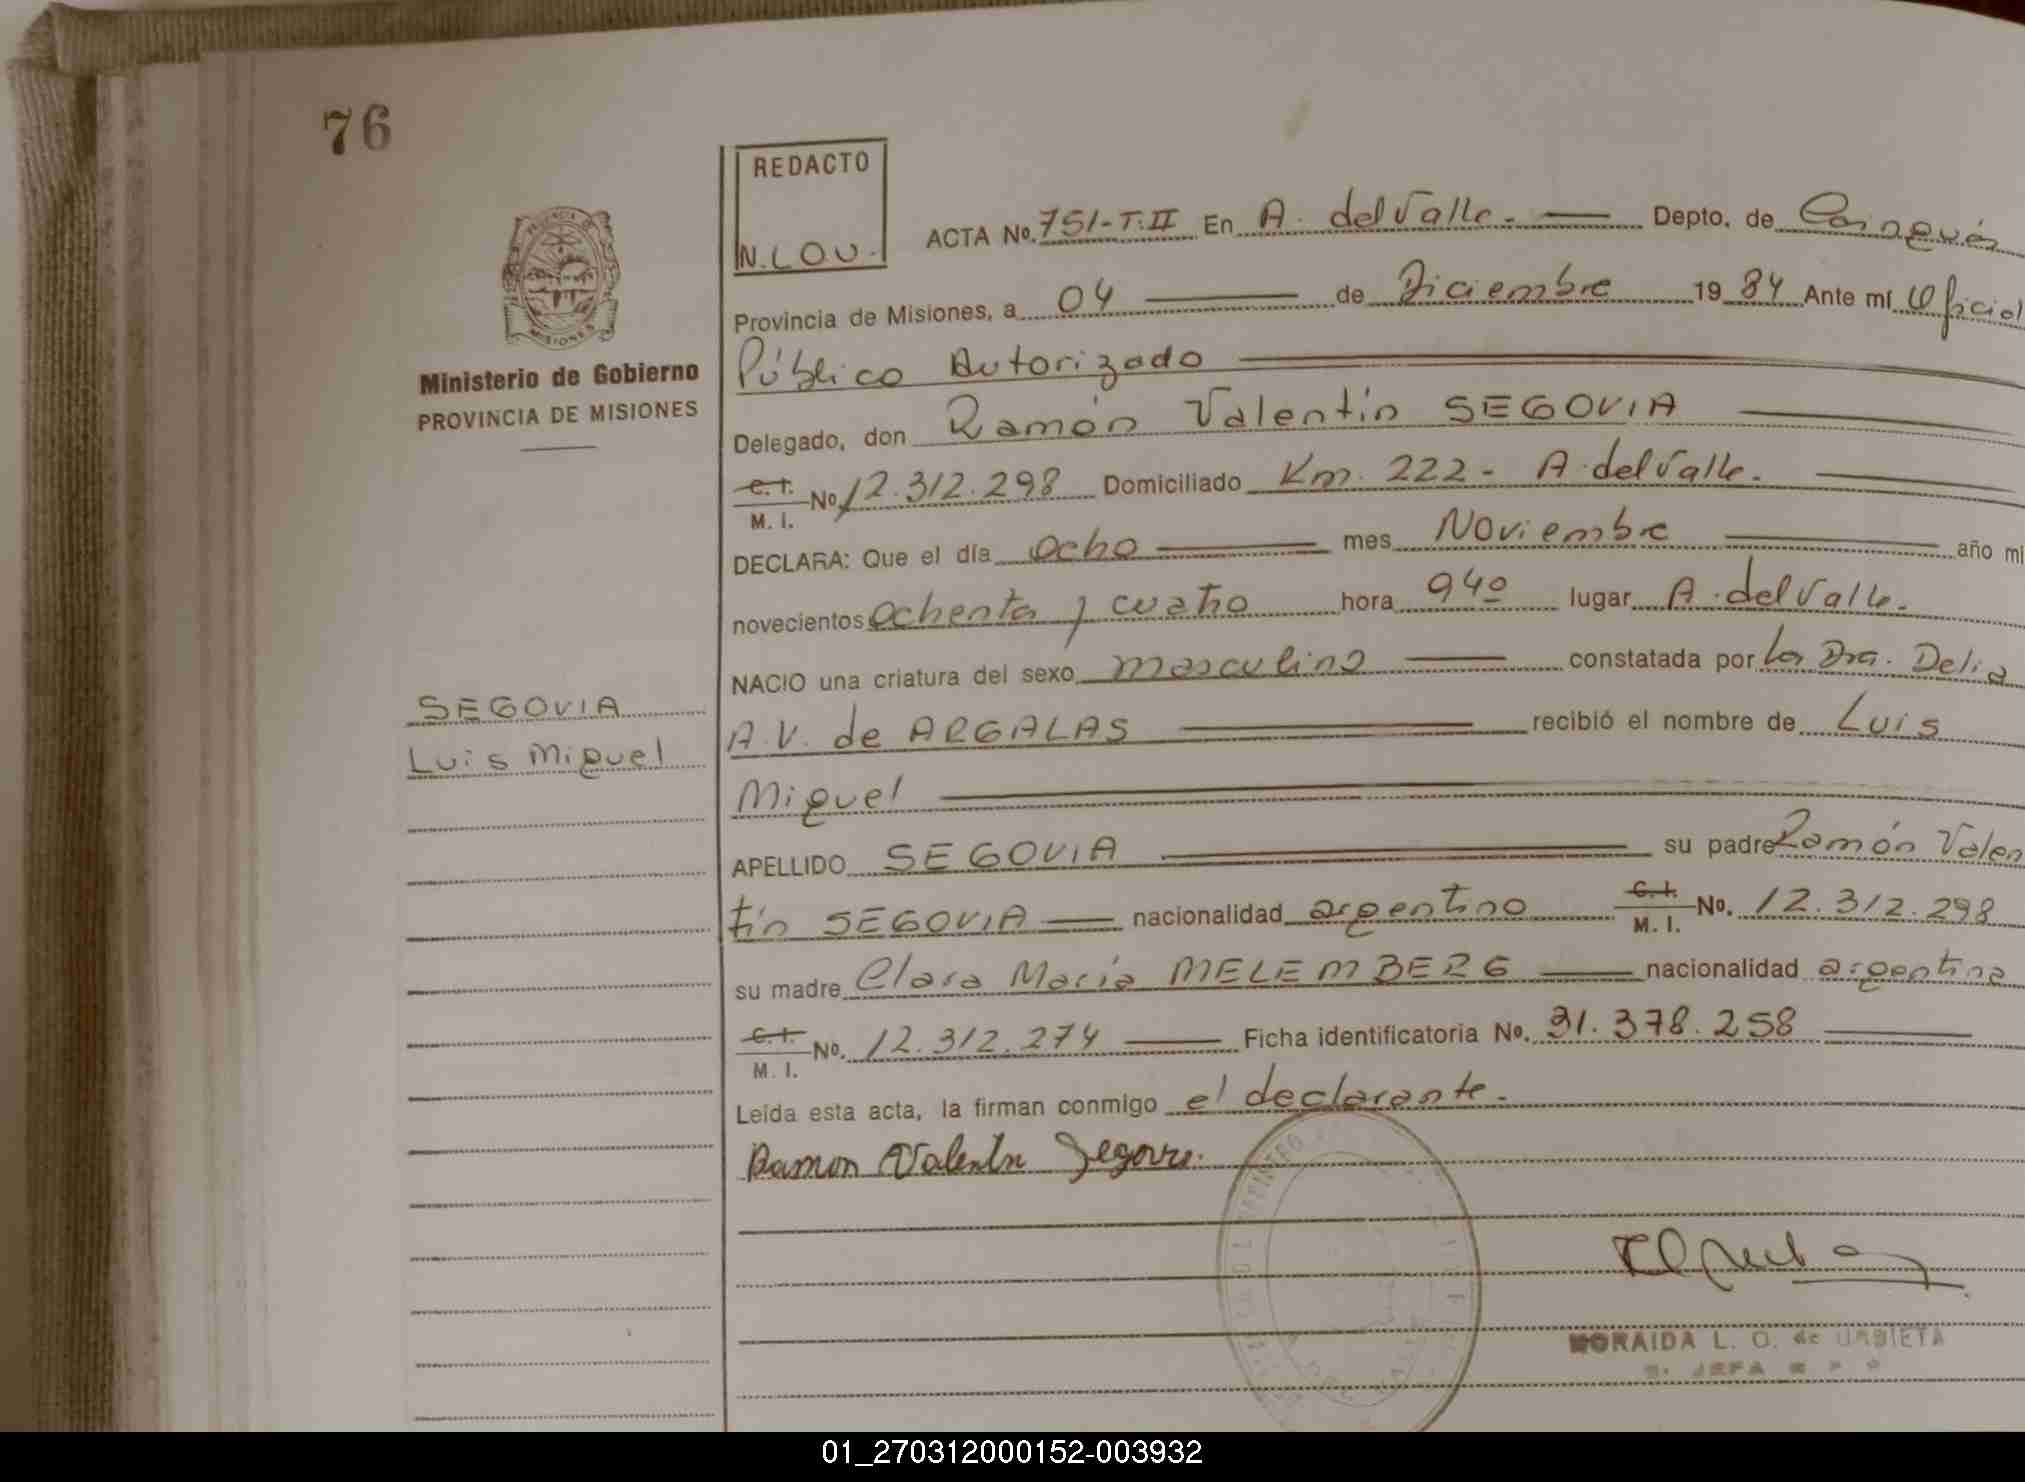 76
REDACTO
N.LOU.
ACTA No. 751-T.II En A. del Valle.- Depto. de Cainguás
Provincia de Misiones, a 04 de Diciembre 19 84 Ante mí Oficial
Público Autorizado
Delegado, don Ramón Valentín SEGOVIA
C. I. M. I. No 12.312.298 Domiciliado Km. 222- A. del Valle.
DECLARA: Que el día ocho mes Noviembre año mi
novecientos ochenta y cuatro hora 94º lugar A. del Valle.
NACIO una criatura del sexo masculino constatada por la Dra. Delia
A.V. de ARGALAS recibió el nombre de Luis
Miguel
APELLIDO SEGOVIA su padre Ramón Valen
tín SEGOVIA nacionalidad argentino C. I. M. I. No. 12.312.298
su madre Clara María MELEMBERG nacionalidad argentina
C. I. M. I. No. 12.312.274 Ficha identificatoria No. 31.378.258
Leída esta acta, la firman conmigo el declarante.
Ramon Valentin Segovia.
MORAIDA L. O. de URBIETA
JEFA
PROVINCIA DE
MISIONES
Ministerio de Gobierno
PROVINCIA DE MISIONES
SEGOVIA
Luis Miguel
01_270312000152-003932